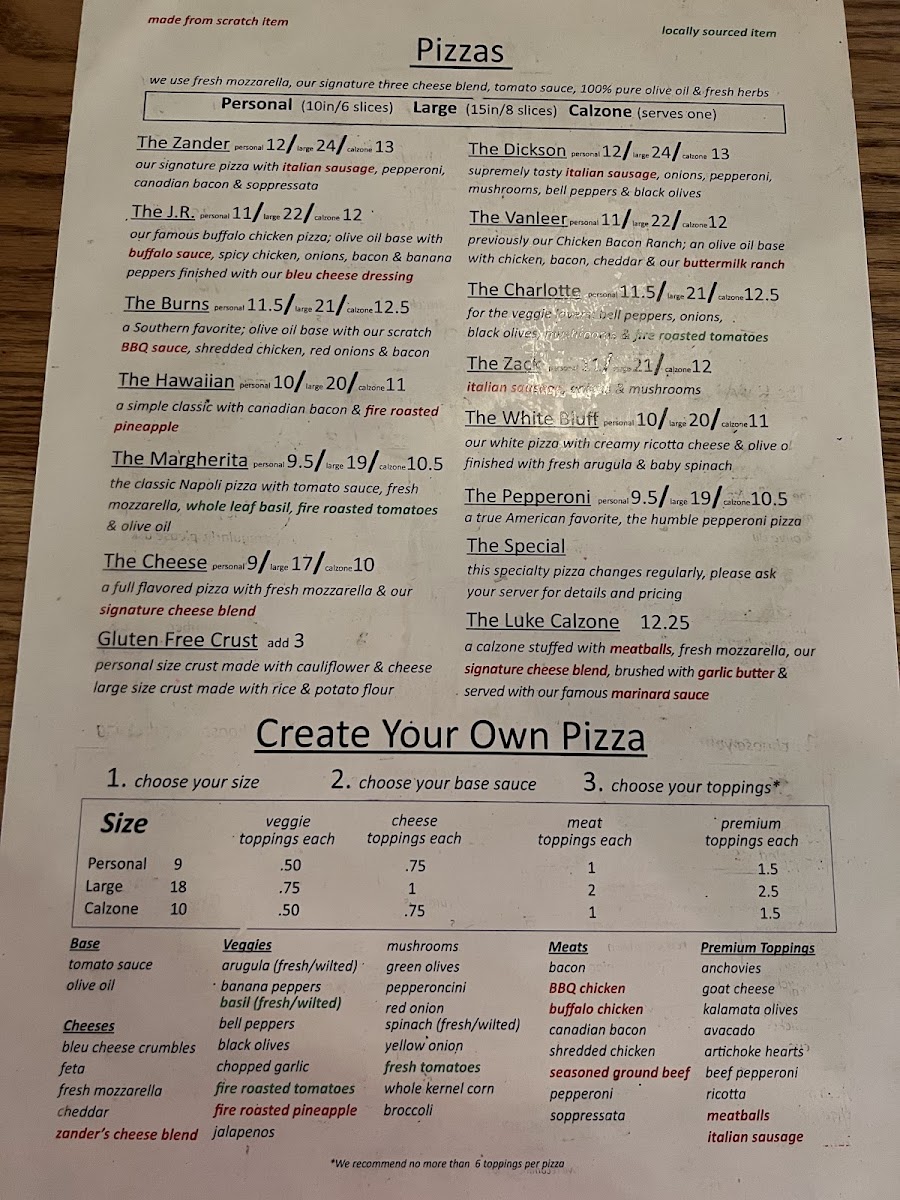 made from scratch item
locally sourced item
Pizzas
we use fresh mozzarella, our signature three cheese blend, tomato sauce, 100% pure olive oil & fresh herbs
Personal (10in/6 slices) Large (15in/8 slices) Calzone (serves one)
The Zander personal 12/large 24/calzone 13
our signature pizza with italian sausage, pepperoni,
canadian bacon & soppressata
The J.R. personal 11/large 22/calzone 12
our famous buffalo chicken pizza; olive oil base with
buffalo sauce, spicy chicken, onions, bacon & banana
peppers finished with our bleu cheese dressing
The Burns personal 11.5/large 21/calzone 12.5
a Southern favorite; olive oil base with our scratch
BBQ sauce, shredded chicken, red onions & bacon
The Hawaiian personal 10/large 20/calzone 11
a simple classic with canadian bacon & fire roasted
pineapple
The Margherita personal 9.5/large 19/calzone 10.5
the classic Napoli pizza with tomato sauce, fresh
mozzarella, whole leaf basil, fire roasted tomatoes
& olive oil
The Cheese personal 9/large 17/calzone 10
a full flavored pizza with fresh mozzarella & our
signature cheese blend
Gluten Free Crust add 3
personal size crust made with cauliflower & cheese
large size crust made with rice & potato flour
The Dickson personal 12/large 24/calzone 13
supremely tasty italian sausage, onions, pepperoni,
mushrooms, bell peppers & black olives
The Vanleer personal 11/large 22/calzone 12
previously our Chicken Bacon Ranch; an olive oil base
with chicken, bacon, cheddar & our buttermilk ranch
The Charlotte personal 11.5/large 21/calzone 12.5
for the veggie bell peppers, onions,
black olives, & fire roasted tomatoes
The Zack 21/calzone 12
italian sausage, & mushrooms
The White Bluff personal 10/large 20/calzone 11
our white pizza with creamy ricotta cheese & olive
finished with fresh arugula & baby spinach
The Pepperoni personal 9.5/large 19/calzone 10.5
a true American favorite, the humble pepperoni pizza
The Special
this specialty pizza changes regularly, please ask
your server for details and pricing
The Luke Calzone 12.25
a calzone stuffed with meatballs, fresh mozzarella, our
signature cheese blend, brushed with garlic butter &
served with our famous marinard sauce
Create Your Own Pizza
1. choose your size 2. choose your base sauce 3. choose your toppings*
Size veggie toppings each cheese toppings each meat toppings each premium toppings each
Personal 9 .50 .75 1 1.5
Large 18 .75 1 2 2.5
Calzone 10 .50 .75 1 1.5
Base
tomato sauce
olive oil
Cheeses
bleu cheese crumbles
feta
fresh mozzarella
cheddar
zander's cheese blend
Veggies
arugula (fresh/wilted)
banana peppers
basil (fresh/wilted)
bell peppers
black olives
chopped garlic
fire roasted tomatoes
fire roasted pineapple
jalapenos
mushrooms
green olives
pepperoncini
red onion
spinach (fresh/wilted)
yellow onion
fresh tomatoes
whole kernel corn
broccoli
Meats
bacon
BBQ chicken
buffalo chicken
canadian bacon
shredded chicken
seasoned ground beef
pepperoni
soppressata
Premium Toppings
anchovies
goat cheese
kalamata olives
avacado
artichoke hearts
beef pepperoni
ricotta
meatballs
italian sausage
*We recommend no more than 6 toppings per pizza